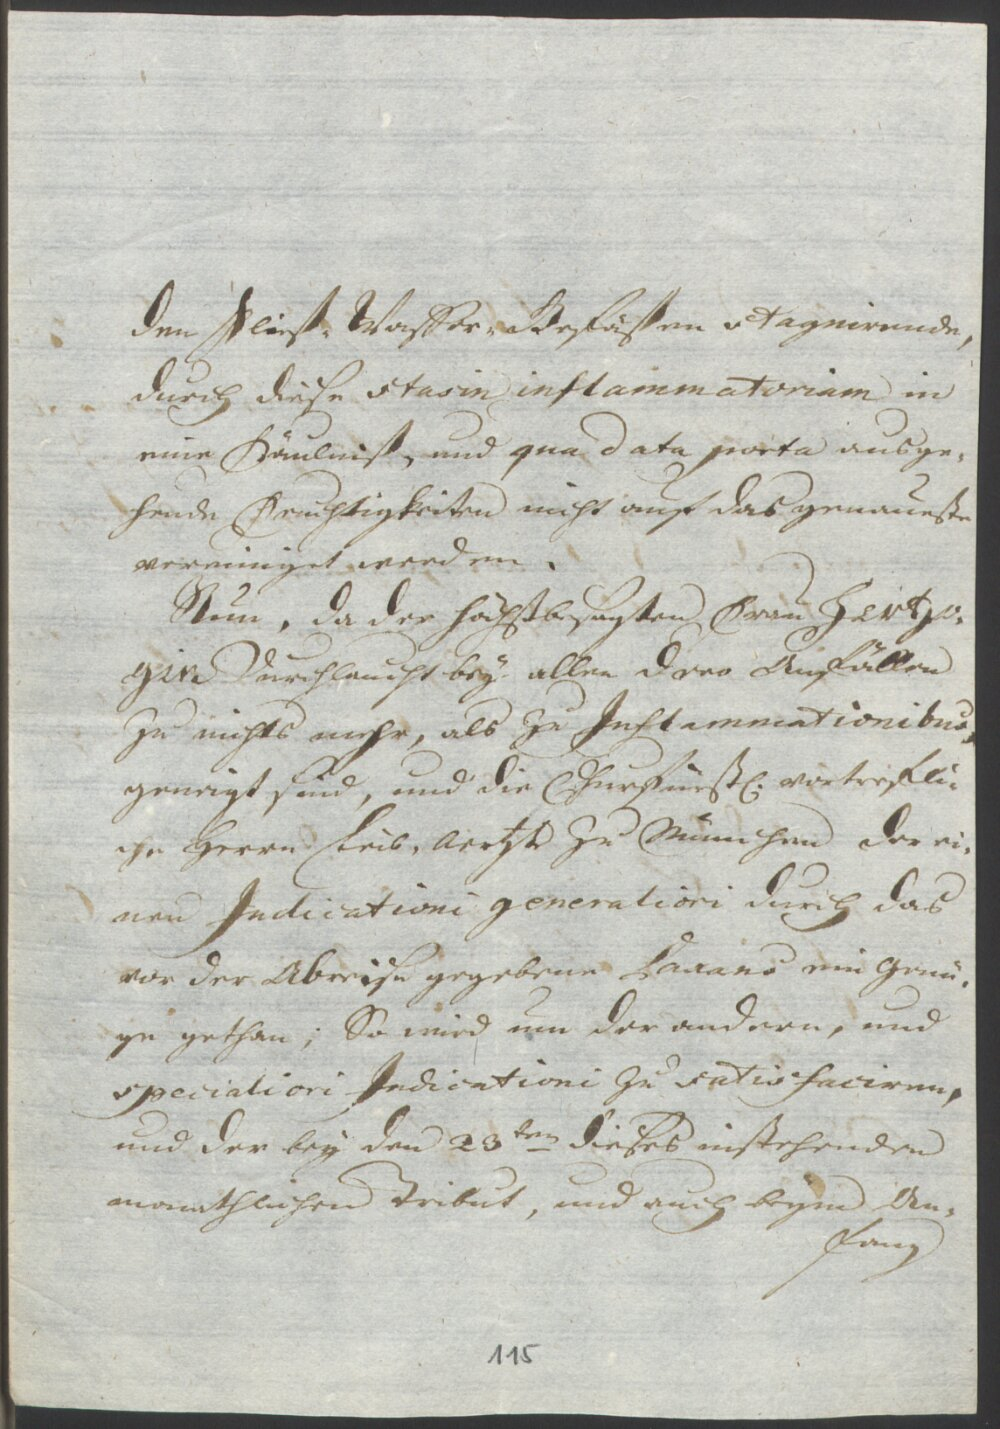 den Fließ-Wasser-Gefäßen stagnirende,
durch diese stasin inflammatoriam in
eine Fäulniß, und qua data porta ausge-
hende Feuchtigkeiten nicht auf das genaueste
vereiniget werden.
Nun, da der höchstbesagten Frau Hertzo-
gin Durchlaucht bey allen dero Anfällen
zu nichts mehr, als zu Inflammationibus
geneigt sind, und die Churfürstl: vortrefli-
che Herrn Leib-Aertzte zu München der ei-
nen Indicationi generaliori durch das
vor der Abreise gegebene Laxans ein Genü-
ge gethan; So wird um der andern, und
specialiori Indicationi zu satisfaciren,
und der bey den 23ten dieses instehenden
monathlichen Tribut, und auch beym An-
fang
115